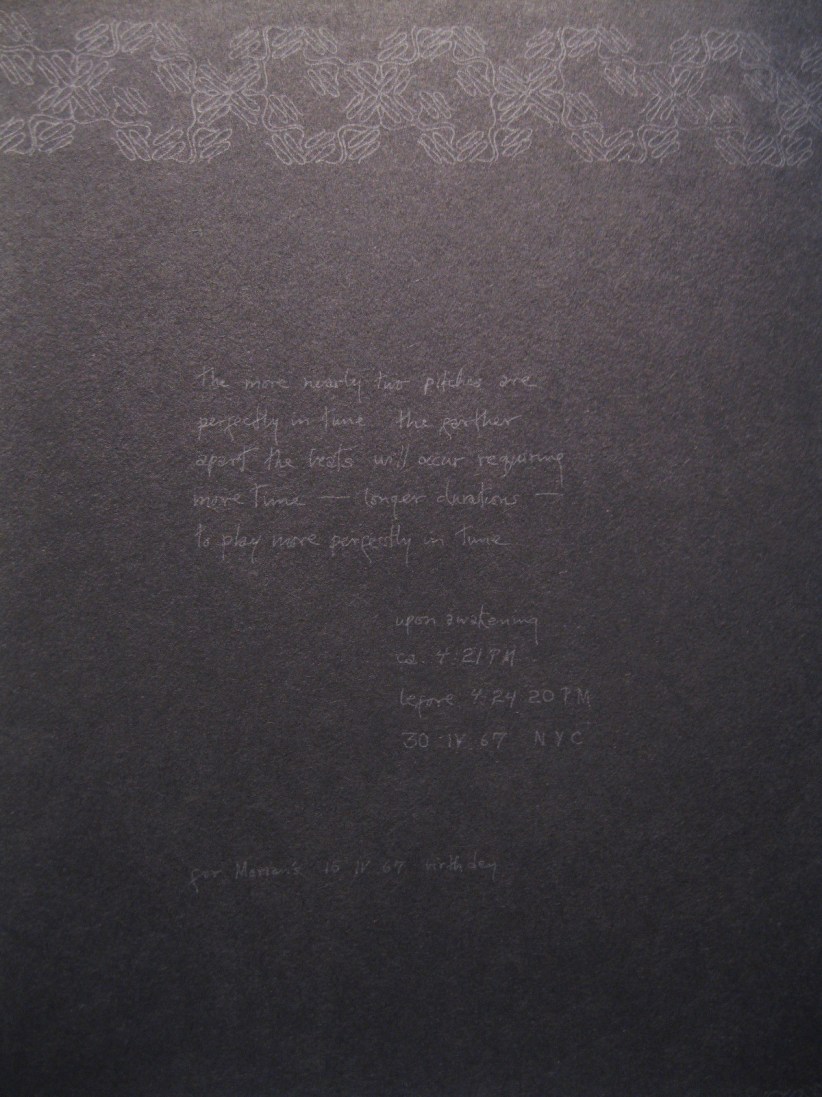 the more nearly two pitches are
perfectly in tune the farther
apart the beats will occur requiring
more time — longer durations —
to play more perfectly in tune
upon awakening
ca. 4:21 PM
before 4:24 20 PM
30 IV 67 NYC
for Marian's IV 67 birthday